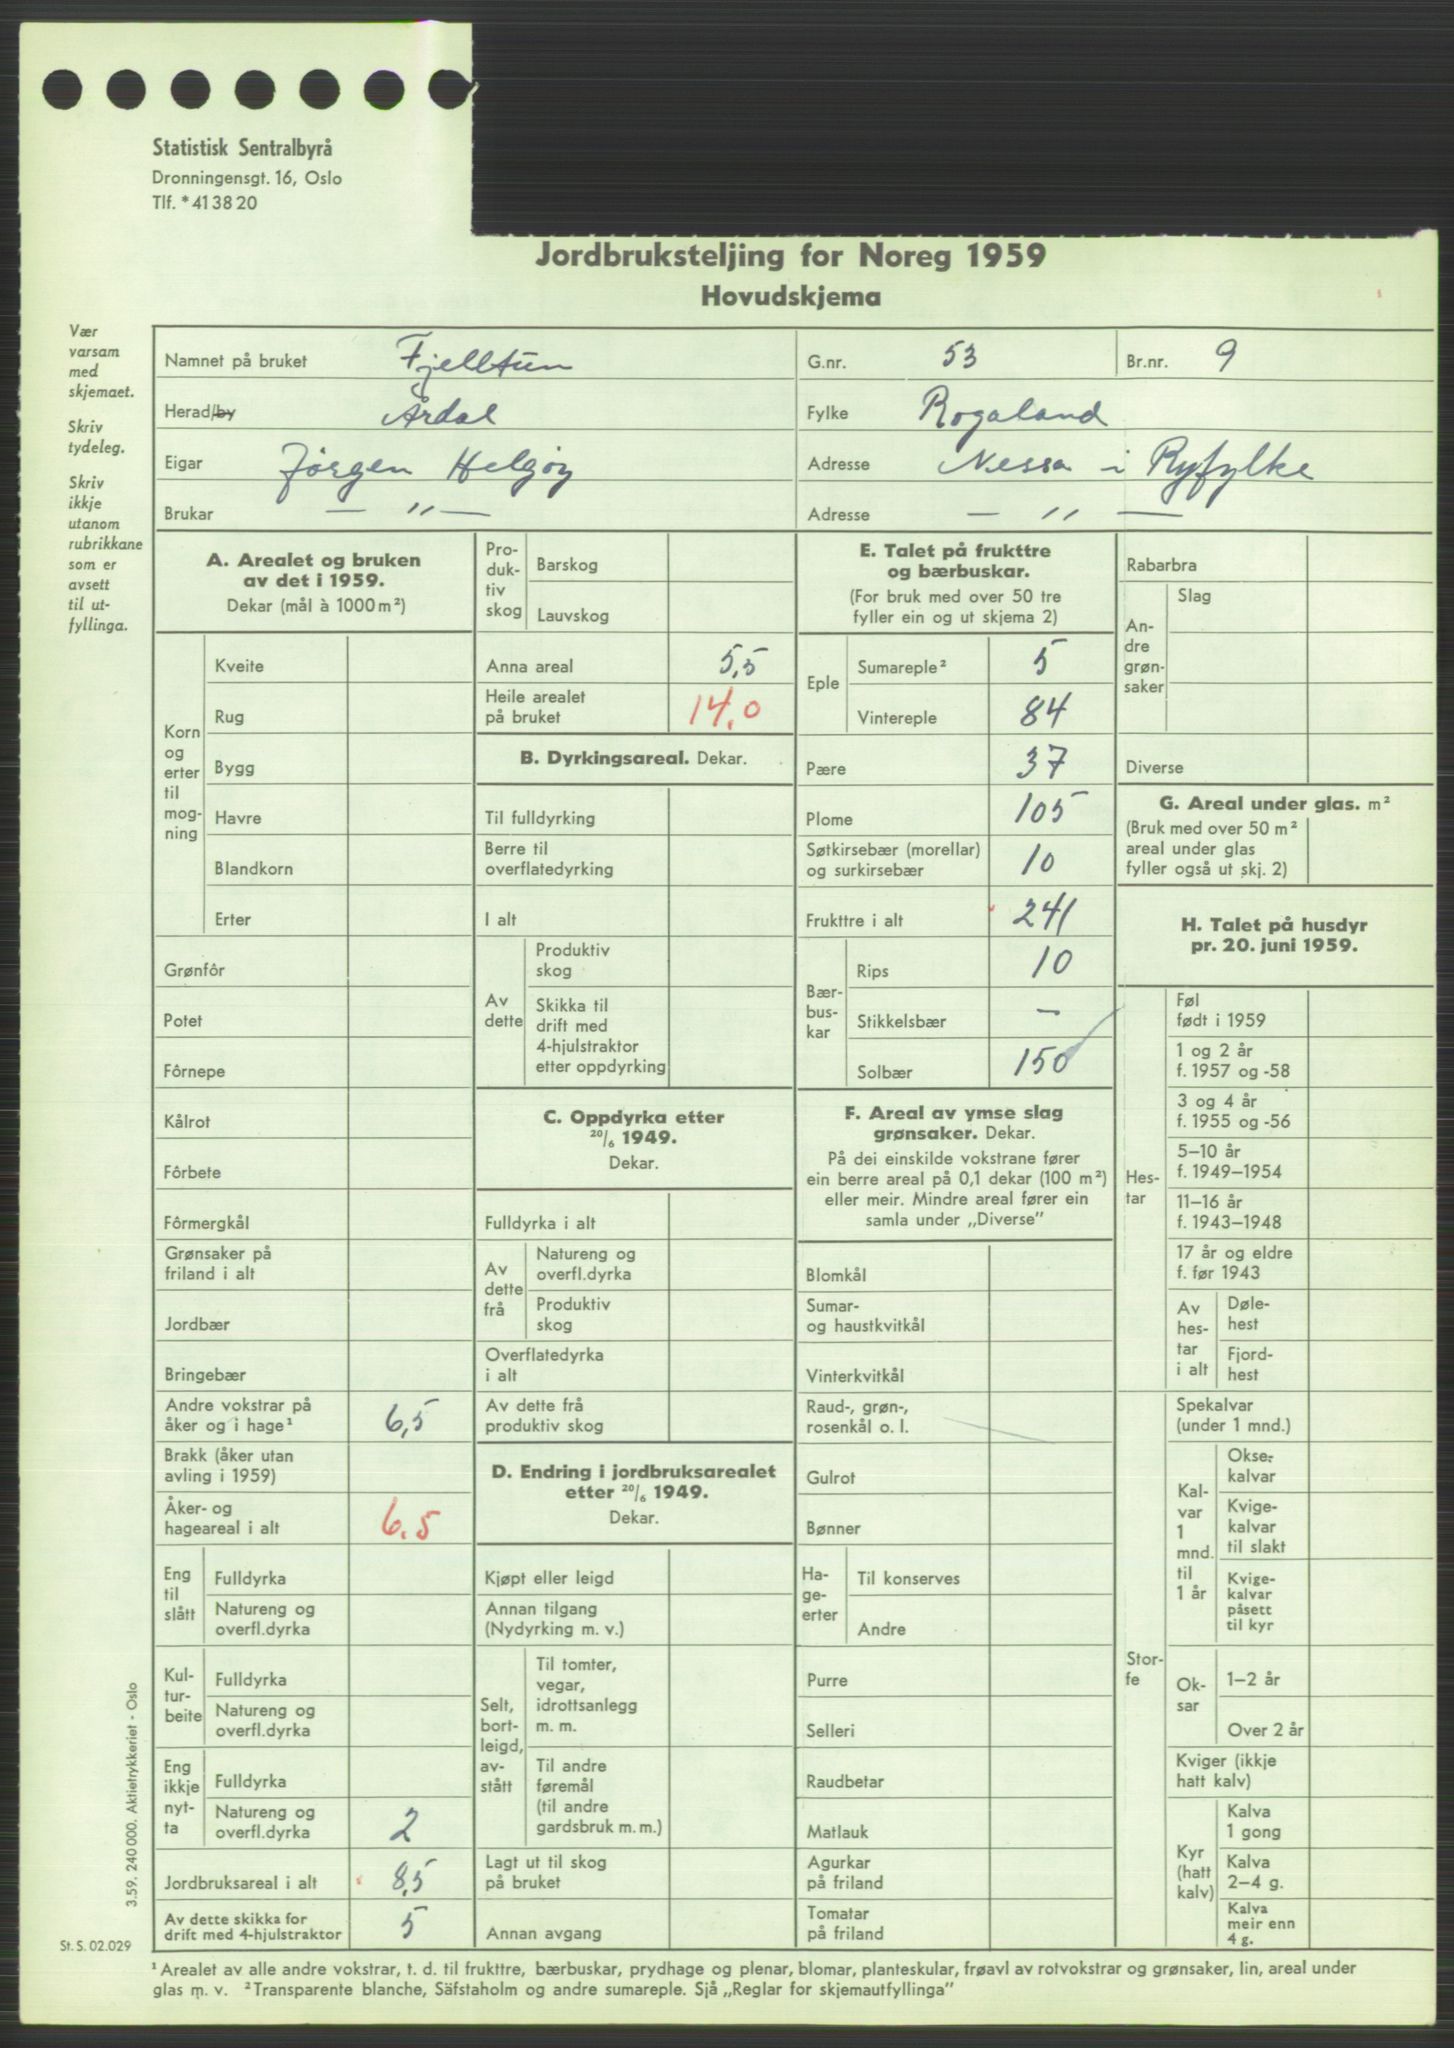 Statistisk Sentralbyrå
Dronningensgt. 16, Oslo
Tlf. * 41 38 20
Jordbruksteljing for Noreg 1959
Hovudskjema
Vær
varsam
med
skjemaet.
Skriv
tydeleg.
Skriv
ikkje
utanom
rubrikkane
som er
avsett
til ut-
fyllinga.
Namnet på bruket Fjelltun G.nr. 53 Br.nr. 9
Herad/by Årdal Fylke Rogaland
Eigar Jørgen Helgøy Adresse Nessa i Ryfylke
Brukar — " — Adresse — " —
A. Arealet og bruken
av det i 1959.
Dekar (mål à 1000 m²)
Korn
og
erter
til
mog-
ning
Kveite
Rug
Bygg
Havre
Blandkorn
Erter
Grønfôr
Potet
Fôrnepe
Kålrot
Fôrbete
Fôrmergkål
Grønsaker på
friland i alt
Jordbær
Bringebær
Andre vokstrar på
åker og i hage¹ 6,5
Brakk (åker utan
avling i 1959)
Åker- og
hageareal i alt 6.5
Eng
til
slått
Fulldyrka
Natureng og
overfl.dyrka
Kul-
tur-
beite
Fulldyrka
Natureng og
overfl.dyrka
Eng
ikkje
nyt-
ta
Fulldyrka
Natureng og
overfl.dyrka 2
Jordbruksareal i alt 8,5
Av dette skikka for
drift med 4-hjulstraktor 5
Pro-
duk-
tiv
skog
Barskog
Lauvskog
Anna areal 5,5
Heile arealet
på bruket 14.0
B. Dyrkingsareal. Dekar.
Til fulldyrking
Berre til
overflatedyrking
I alt
Av
dette
Produktiv
skog
Skikka til
drift med
4-hjulstraktor
etter oppdyrking
C. Oppdyrka etter
20/6 1949.
Dekar.
Fulldyrka i alt
Av
dette
frå
Natureng og
overfl.dyrka
Produktiv
skog
Overflatedyrka
i alt
Av dette frå
produktiv skog
D. Endring i jordbruksarealet
etter 20/6 1949.
Dekar.
Kjøpt eller leigd
Annan tilgang
(Nydyrking m. v.)
Selt,
bort-
leigd,
av-
stått
Til tomter,
vegar,
idrottsanlegg
m. m.
Til andre
føremål
(til andre
gardsbruk m. m.)
Lagt ut til skog
på bruket
Annan avgang
E. Talet på frukttre
og bærbuskar.
(For bruk med over 50 tre
fyller ein og ut skjema 2)
Eple
Sumareple² 5
Vintereple 84
Pære 37
Plome 105
Søtkirsebær (morellar)
og surkirsebær 10
Frukttre i alt 241
Bær-
bus-
kar
Rips 10
Stikkelsbær —
Solbær 150
F. Areal av ymse slag
grønsaker. Dekar.
På dei einskilde vokstrane fører
ein berre areal på 0,1 dekar (100 m²)
eller meir. Mindre areal fører ein
samla under „Diverse”
Blomkål
Sumar-
og haustkvitkål
Vinterkvitkål
Raud-, grøn-,
rosenkål o. l.
Gulrot
Bønner
Ha-
ge-
erter
Til konserves
Andre
Purre
Selleri
Raudbetar
Matlauk
Agurkar
på friland
Tomatar
på friland
Rabarbra
An-
dre
grøn-
saker
Slag
Diverse
G. Areal under glas. m²
(Bruk med over 50 m²
areal under glas
fyller også ut skj. 2)
H. Talet på husdyr
pr. 20. juni 1959.
Hes-
tar
Føl
født i 1959
1 og 2 år
f. 1957 og -58
3 og 4 år
f. 1955 og -56
5–10 år
f. 1949–1954
11–16 år
f. 1943–1948
17 år og eldre
f. før 1943
Av
hes-
tar
i alt
Døle-
hest
Fjord-
hest
Stor-
fe
Spekalvar
(under 1 mnd.)
Kal-
var
1
mnd.
til
1 år
Okse-
kalvar
Kvige-
kalvar
til slakt
Kvige-
kalvar
påsett
til kyr
Ok-
sar
1–2 år
Over 2 år
Kviger (ikkje
hatt kalv)
Kyr
(hatt
kalv)
Kalva
1 gong
Kalva
2–4 g.
Kalva
meir enn
4 g.
3.59. 240 000. Aktietrykkeriet - Oslo
St. S. 02.029
¹ Arealet av alle andre vokstrar, t. d. til frukttre, bærbuskar, prydhage og plenar, blomar, planteskular, frøavl av rotvokstrar og grønsaker, lin, areal under
glas m. v. ² Transparente blanche, Säfstaholm og andre sumareple. Sjå „Reglar for skjemautfyllinga”